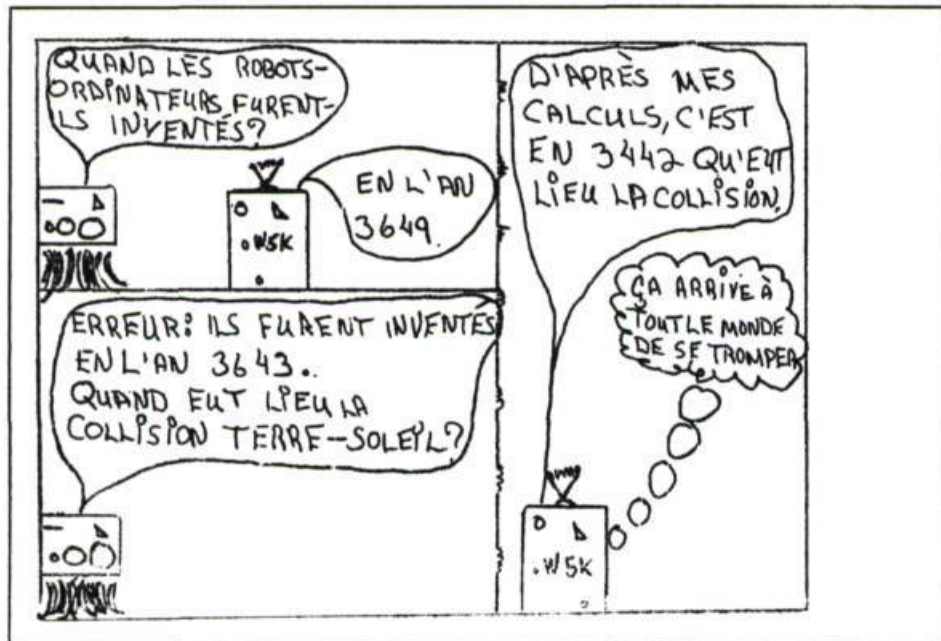 QUAND LES ROBOTS-
ORDINATEURS FURENT-
ILS INVENTÉS?
EN L'AN
3649.
.W5K
ERREUR: ILS FURENT INVENTÉS
EN L'AN 3643..
QUAND EUT LIEU LA
COLLISION TERRE-SOLEIL?
D'APRÈS MES
CALCULS, C'EST
EN 3442 QU'EUT
LIEU LA COLLISION.
ÇA ARRIVE À
TOUT LE MONDE
DE SE TROMPER
.W5K